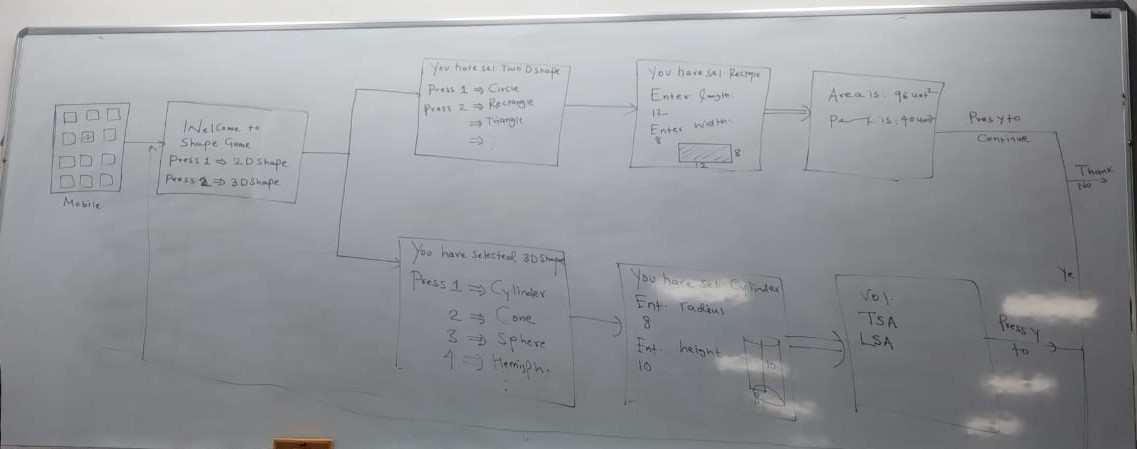 Mobile
Welcome to
Shape Game
Press 1 ⇒ 2D Shape
Press 2 ⇒ 3D Shape
You have sel Two D shape
Press 1 ⇒ Circle
Press 2 ⇒ Rectangle
⇒ Triangle
⇒ :
You have sel
Enter length:
12
Enter width:
8
8
12
Area is: 96 unit²
is: 40 unit
Press y to
Continue
Thank
No
Ye
You have selected 3D Shape
Press 1 ⇒ Cylinder
2 ⇒ Cone
3 ⇒ Sphere
4 ⇒ Hemisph.
:
You have sel Cylinder
Ent. radius
8
Ent. height
10
10
8
Vol.
TSA
LSA
Press y
to